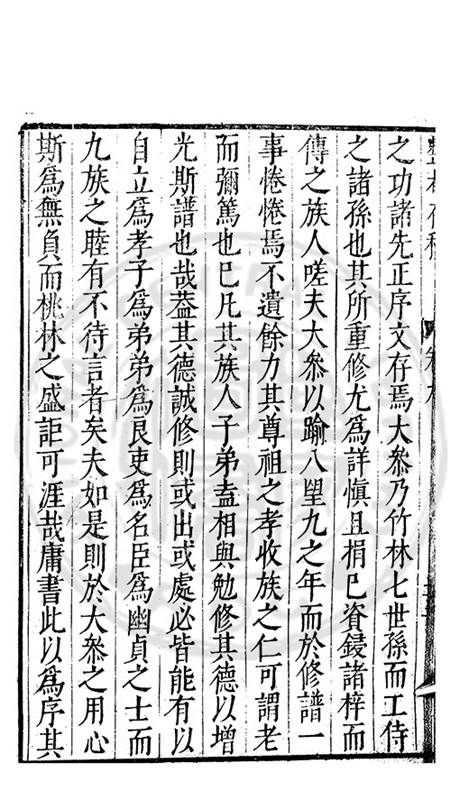 之功諸先正序文存焉大叅乃竹林七世孫而工侍
之諸孫也其所重修尤爲詳慎且捐已資鋟諸梓而
傳之族人嗟夫大叅以踰八望九之年而於修譜一
事惓惓焉不遺餘力其尊祖之孝收族之仁可謂老
而彌篤也已凡其族人子弟盍相與勉修其德以增
光斯譜也哉葢其德誠修則或出或處必皆能有以
自立爲孝子爲弟弟爲良吏爲名臣爲幽貞之士而
九族之睦有不待言者矣夫如是則於大叅之用心
斯爲無負而桃林之盛詎可涯哉庸書此以爲序其